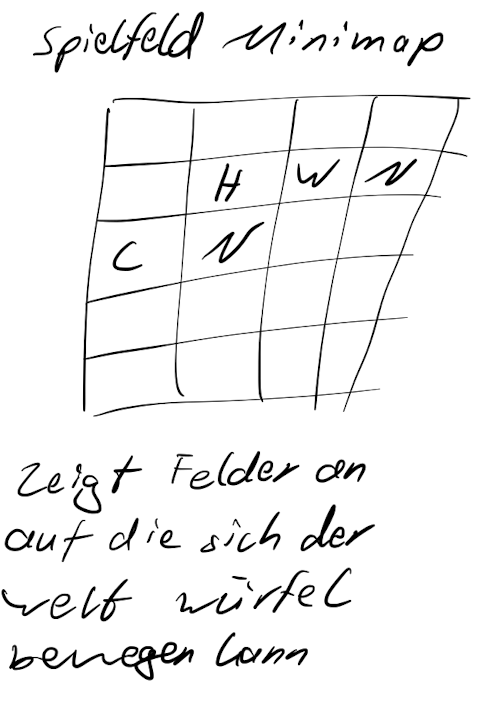 Spielfeld Minimap
H W N
C N
Zeigt Felder an
auf die sich der
welt würfel
bewegen kann